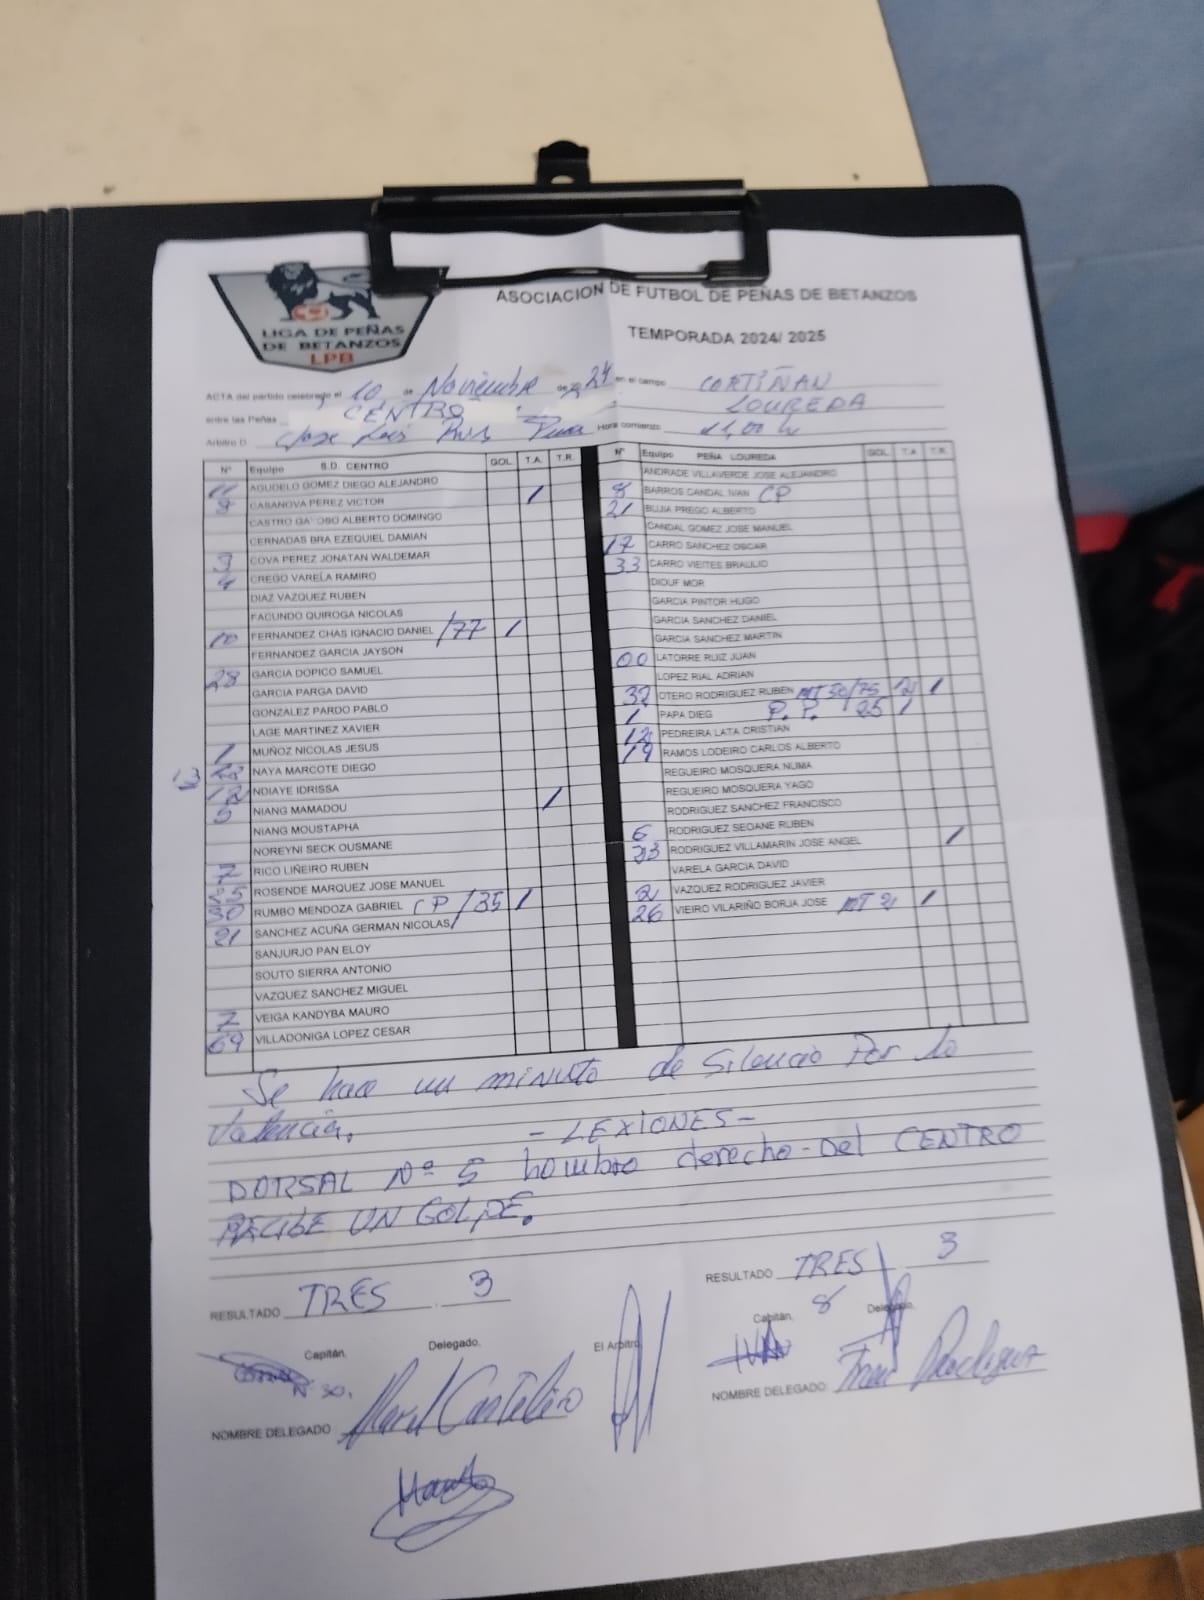 LIGA DE PEÑAS
DE BETANZOS
LPB
ASOCIACION DE FUTBOL DE PEÑAS DE BETANZOS
TEMPORADA 2024/ 2025
ACTA del partido celebrado el 10 de Noviembre de 24 en el campo CORTIÑAN
entre las Peñas CENTRO LOUREDA
Arbitro D. Jose Luis Hora comienzo 11,00 h
Nº Equipo S.D. CENTRO GOL T.A. T.R.
11 AGUDELO GOMEZ DIEGO ALEJANDRO
CASANOVA PEREZ VICTOR /
CASTRO GA OSO ALBERTO DOMINGO
CERNADAS BRA EZEQUIEL DAMIAN
3 COVA PEREZ JONATAN WALDEMAR
4 CREGO VARELA RAMIRO
DIAZ VAZQUEZ RUBEN
FACUNDO QUIROGA NICOLAS
10 FERNANDEZ CHAS IGNACIO DANIEL /77 /
FERNANDEZ GARCIA JAYSON
28 GARCIA DOPICO SAMUEL
GARCIA PARGA DAVID
GONZALEZ PARDO PABLO
LAGE MARTINEZ XAVIER
1 MUÑOZ NICOLAS JESUS
13 NAYA MARCOTE DIEGO
12 NDIAYE IDRISSA
5 NIANG MAMADOU /
NIANG MOUSTAPHA
NOREYNI SECK OUSMANE
7 RICO LIÑEIRO RUBEN
ROSENDE MARQUEZ JOSE MANUEL
30 RUMBO MENDOZA GABRIEL CP /35 /
21 SANCHEZ ACUÑA GERMAN NICOLAS
SANJURJO PAN ELOY
SOUTO SIERRA ANTONIO
VAZQUEZ SANCHEZ MIGUEL
7 VEIGA KANDYBA MAURO
69 VILLADONIGA LOPEZ CESAR
Nº Equipo PEÑA LOUREDA GOL T.A. T.R.
ANDRADE VILLAVERDE JOSE ALEJANDRO
8 BARROS CANDAL IVAN CP
21 BUJIA PREGO ALBERTO
CANDAL GOMEZ JOSE MANUEL
17 CARRO SANCHEZ OSCAR
33 CARRO VIEITES BRAULIO
DIOUF MOR
GARCIA PINTOR HUGO
GARCIA SANCHEZ DANIEL
GARCIA SANCHEZ MARTIN
00 LATORRE RUIZ JUAN
LOPEZ RIAL ADRIAN
32 OTERO RODRIGUEZ RUBEN MT 50/75 /
1 PAPA DIEG P.P. 25 /
12 PEDREIRA LATA CRISTIAN
19 RAMOS LODEIRO CARLOS ALBERTO
REGUEIRO MOSQUERA NUMA
REGUEIRO MOSQUERA YAGO
RODRIGUEZ SANCHEZ FRANCISCO
6 RODRIGUEZ SEOANE RUBEN
RODRIGUEZ VILLAMARIN JOSE ANGEL /
VARELA GARCIA DAVID
2 VAZQUEZ RODRIGUEZ JAVIER
26 VIEIRO VILARIÑO BORJA JOSE MT 21 /
Se hace un minuto de Silencio Por lo
Valencia.
- LEXIONES -
DORSAL Nº 5 hombro derecho - Del CENTRO
RECIBE UN GOLPE.
RESULTADO TRES 3
RESULTADO TRES 3
Capitán, Delegado, El Arbitro
Capitán, 8 Delegado,
Nº 30.
IVAN
NOMBRE DELEGADO
NOMBRE DELEGADO Fran Rodriguez